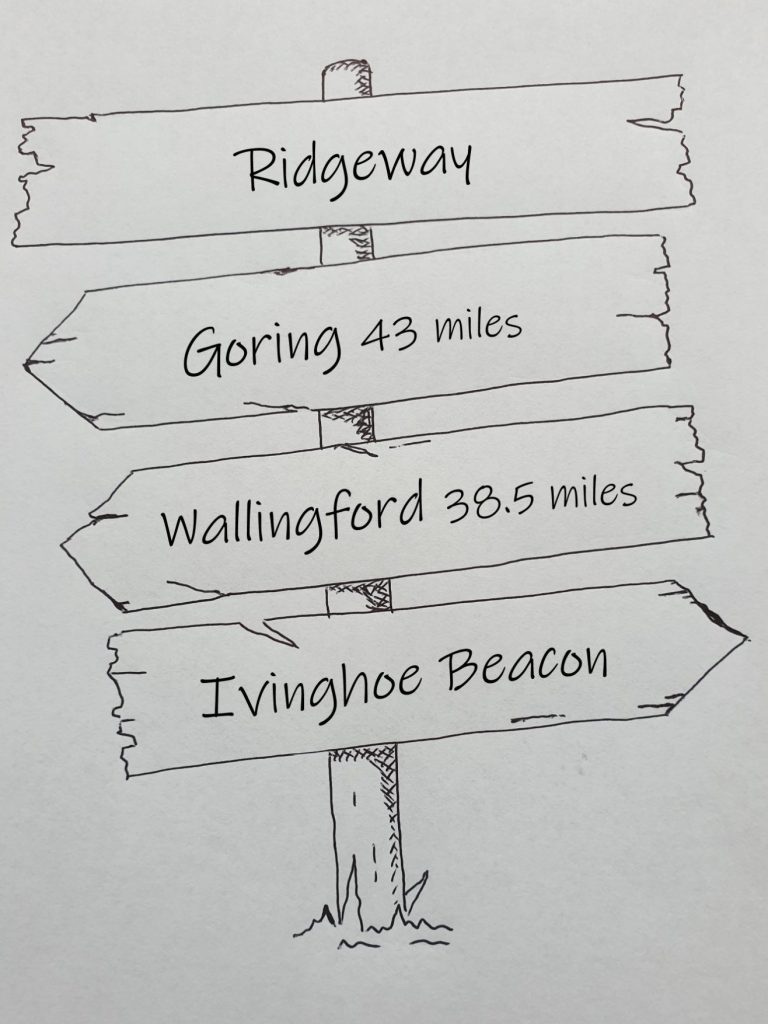 Ridgeway
Goring 43 miles
Wallingford 38.5 miles
Ivinghoe Beacon